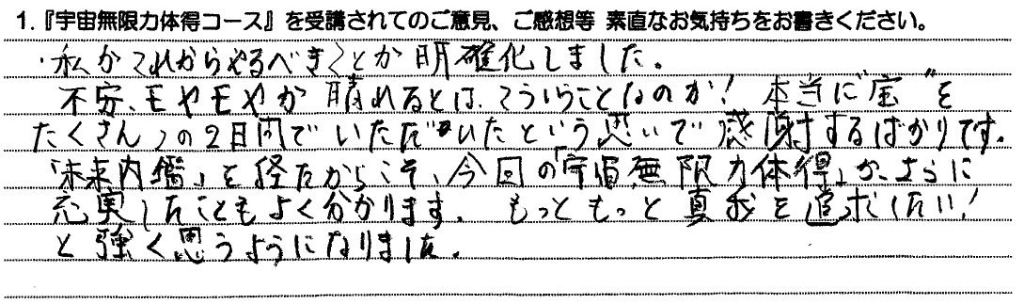 1.『宇宙無限力体得コース』を受講されてのご意見、ご感想等 素直なお気持ちをお書きください。
・私がこれからやるべきことが明確化しました。
不安、モヤモヤが晴れるとは、こういうことなのか！本当に"宝"を
たくさんこの2日間でいただいたという思いで感謝するばかりです。
「未来内観」を経たからこそ、今回の「宇宙無限力体得」が、さらに
充実したこともよく分かります。もっともっと真我を追求したい！
と強く思うようになりました。